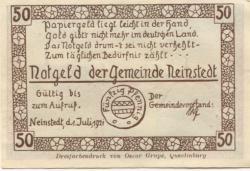 50 50
Papiergeld liegt leicht in der Hand,
Gold gibt nicht mehr im deutschen Land.
Das Notgeld drum-t sei nicht verhehlt-
Zum täglichen Bedürfnis zählt ---
Notgeld der Gemeinde Neinstedt
Gültig bis
zum Aufruf.
Fünfzig Pfennig
Der
Gemeindevorstand:
Neinstedt, d. 1. Juli, 1921
50 50
Dreifarbendruck von Oscar Grupe, Quedlinburg